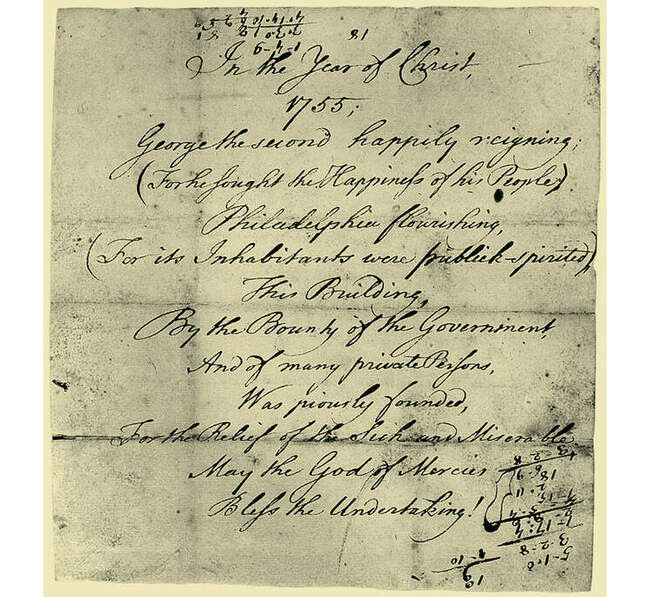 81
In the Year of Christ,
1755;
George the second happily reigning;
(For he sought the Happiness of his People)
Philadelphia flourishing,
(For its Inhabitants were publick-spirited),
This Building,
By the Bounty of the Government,
And of many private Persons,
Was piously founded,
For the Relief of the Sick and Miserable.
May the God of Mercies
Bless the Undertaking!